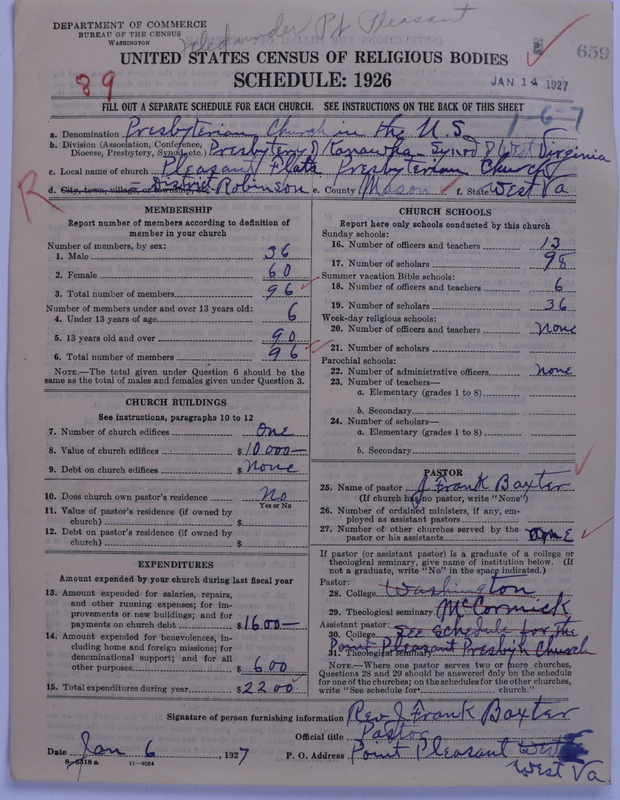 DEPARTMENT OF COMMERCE
BUREAU OF THE CENSUS
WASHINGTON
under Pt Pleasant
659
UNITED STATES CENSUS OF RELIGIOUS BODIES
SCHEDULE: 1926
89
JAN 14 1927
FILL OUT A SEPARATE SCHEDULE FOR EACH CHURCH. SEE INSTRUCTIONS ON THE BACK OF THIS SHEET
1-6-7
a. Denomination Presbyterian Church in the U.S.
b. Division (Association, Conference, Diocese, Presbytery, Synod, etc.) Presbytery of Kanawha Synod of West Virginia
c. Local name of church Pleasant Flats Presbyterian Church
R
d. City, town, village, or township, District Robinson e. County Mason f. State West Va
MEMBERSHIP
Report number of members according to definition of
member in your church
Number of members, by sex:
1. Male 36
2. Female 60
3. Total number of members 96
Number of members under and over 13 years old:
4. Under 13 years of age 6
5. 13 years old and over 90
6. Total number of members 96
NOTE.—The total given under Question 6 should be the
same as the total of males and females given under Question 3.
CHURCH BUILDINGS
See instructions, paragraphs 10 to 12
7. Number of church edifices One
8. Value of church edifices $10,000—
9. Debt on church edifices $None
10. Does church own pastor's residence No
Yes or No
11. Value of pastor's residence (if owned by
church) $
12. Debt on pastor's residence (if owned by
church) $
EXPENDITURES
Amount expended by church during last fiscal year
13. Amount expended for salaries, repairs,
and other running expenses; for im-
provements or new buildings; and for
payments on church debt $1600—
14. Amount expended for benevolences, in-
cluding home and foreign missions; for
denominational support; and for all
other purposes $600
15. Total expenditures during year $2200
CHURCH SCHOOLS
Report here only schools conducted by this church
Sunday schools:
16. Number of officers and teachers 13
17. Number of scholars 98
Summer vacation Bible schools:
18. Number of officers and teachers 6
19. Number of scholars 36
Week-day religious schools:
20. Number of officers and teachers None
21. Number of scholars
Parochial schools:
22. Number of administrative officers None
23. Number of teachers—
a. Elementary (grades 1 to 8)
b. Secondary
24. Number of scholars—
a. Elementary (grades 1 to 8)
b. Secondary
PASTOR
25. Name of pastor J Frank Baxter
(If church has no pastor, write "None")
26. Number of ordained ministers, if any, em-
ployed as assistant pastors
27. Number of other churches served by the
pastor or his assistants One
If pastor (or assistant pastor) is a graduate of a college or
theological seminary, give name of institution below. (If
not a graduate, write "No" in the space indicated.)
Pastor:
28. College Washington
29. Theological seminary McCormick
Assistant pastor:
30. College See schedule for the
31. Theological seminary Point Pleasant Presby'n Church
NOTE.—Where one pastor serves two or more churches,
Questions 28 and 29 should be answered only on the schedule
for one of the churches; on the schedules for the other churches,
write "See schedule for church."
Signature of person furnishing information Rev. J Frank Baxter
Official title Pastor
Date Jan 6, 1927 P. O. Address Point Pleasant West
West Va
8—5318 a 11—9054